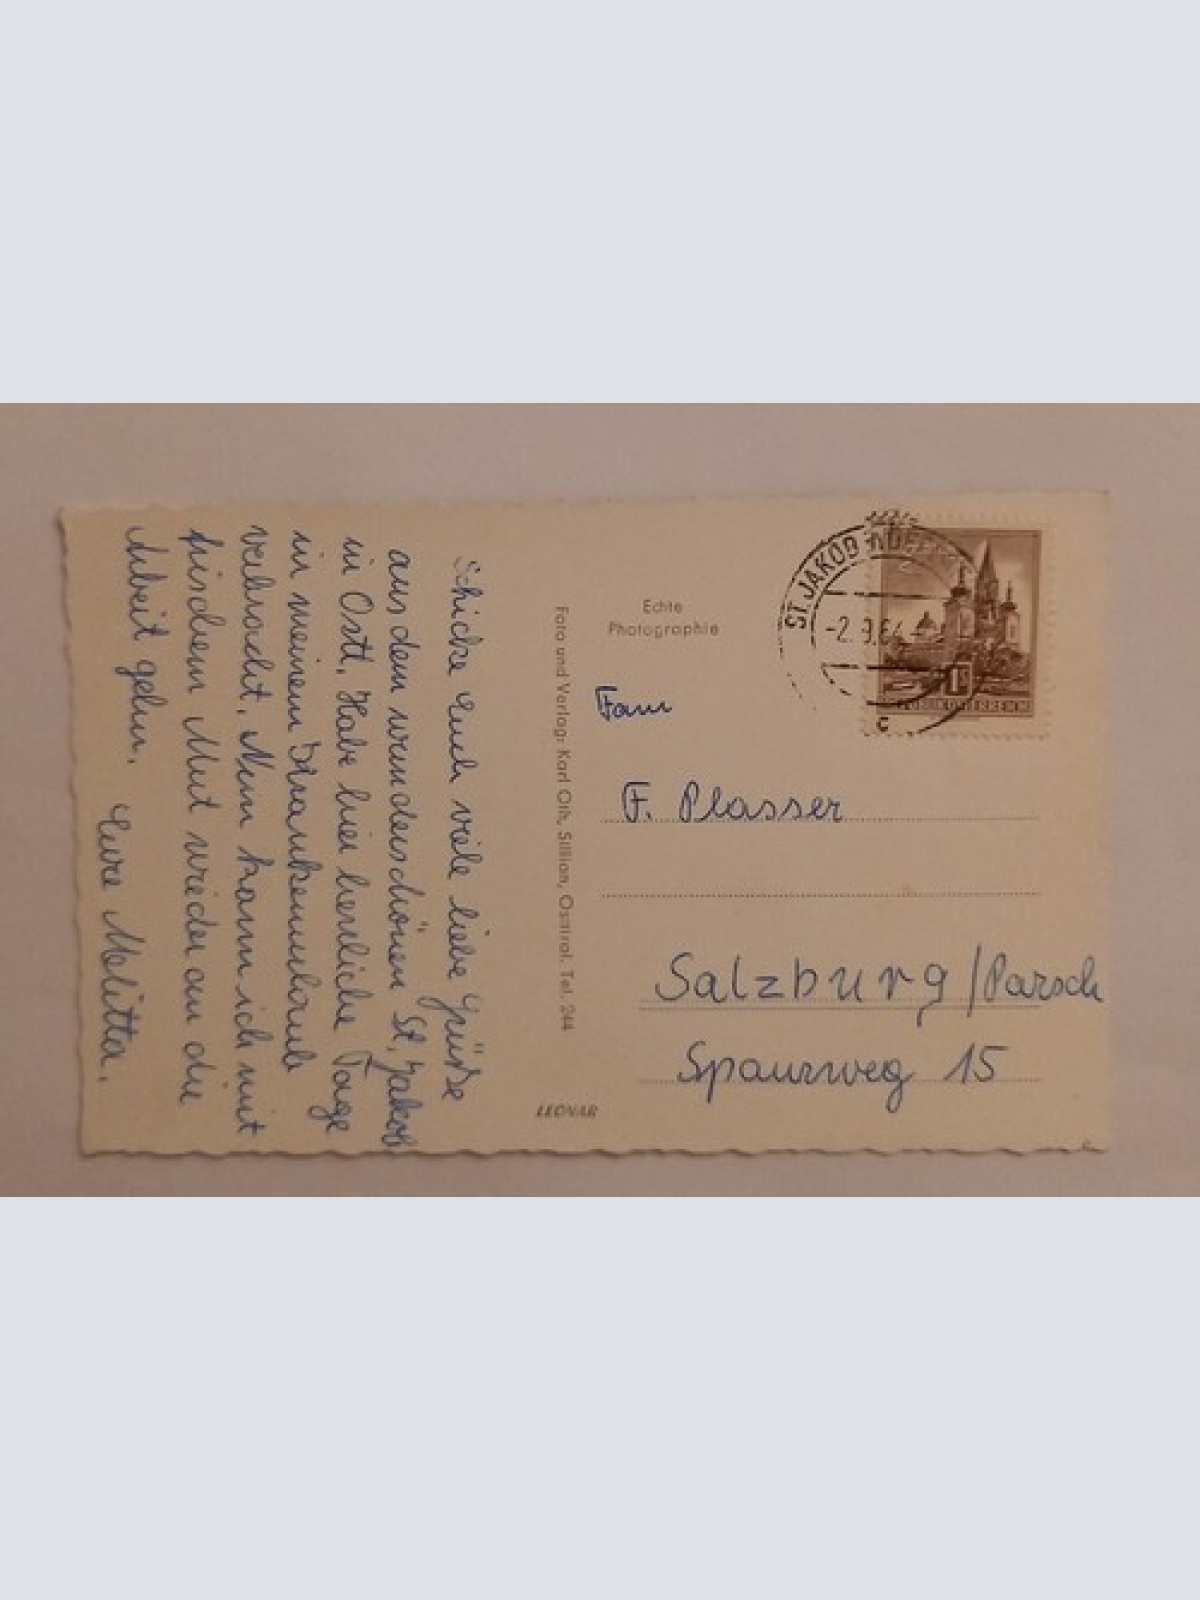 Schicke Euch viele liebe Grüße
aus dem wunderschönen St. Jakob
in Ostt. Habe hier herrliche Tage
in meinem Krankenurlaub
verbracht. Nun kann ich mit
frischem Mut wieder an die
Arbeit gehn.
Eure Melitta.
Foto und Verlag: Karl Oth, Sillian, Osttirol. Tel. 244
LEONAR
Echte
Photographie
ST. JAKOB IN DEF
-2. 9. 64
c
1 S
REPUBLIK ÖSTERREICH
Fam
F. Plasser
Salzburg/Parsch
Spaurweg 15